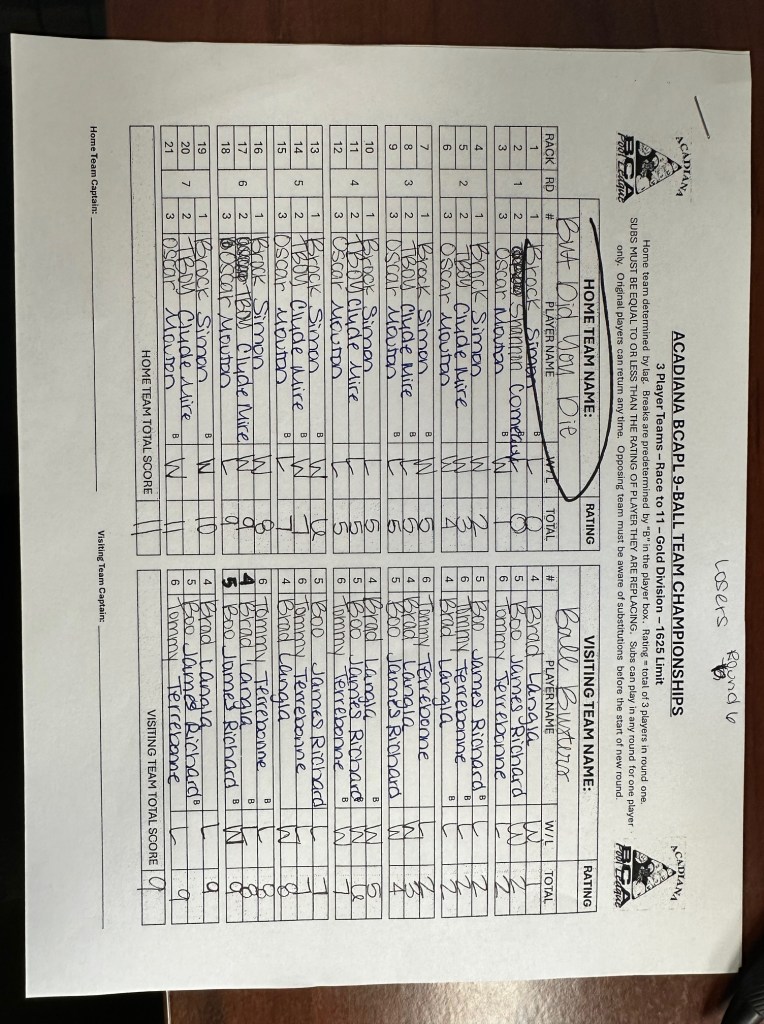 Losers Round 6
ACADIANA BCA Pool League
ACADIANA BCAPL 9-BALL TEAM CHAMPIONSHIPS
ACADIANA BCA Pool League
3 Player Teams – Race to 11 – Gold Division – 1625 Limit
Home team determined by lag. Breaks are predetermined by "B" in the player box. Rating = total of 3 players in round one.
SUBS MUST BE EQUAL TO OR LESS THAN THE RATING OF PLAYER THEY ARE REPLACING. Subs can play in any round for one player
only. Original players can return any time. Opposing team must be aware of substitutions before the start of new round.
HOME TEAM NAME: RATING VISITING TEAM NAME: RATING
But Did You Die Ball Busters
RACK RD # PLAYER NAME W/L TOTAL # PLAYER NAME W/L TOTAL
1 1 Brock Simon B L 0 4 Brad Langla W 1
2 1 2 Shannon Comeaux L 0 5 Boo James Richard W 2
3 3 Oscar Mouton B W 1 6 Tommy Terrebonne L 2
4 1 Brock Simon W 2 5 Boo James Richard B L 2
5 2 2 TBoy Clyde Mire W 3 6 Tommy Terrebonne L 2
6 3 Oscar Mouton W 4 4 Brad Langla B L 2
7 1 Brock Simon B W 5 6 Tommy Terrebonne L 2
8 3 2 TBoy Clyde Mire L 5 4 Brad Langla B W 3
9 3 Oscar Mouton B L 5 5 Boo James Richard W 4
10 1 Brock Simon L 5 4 Brad Langla B W 5
11 4 2 TBoy Clyde Mire B L 5 5 Boo James Richard W 6
12 3 Oscar Mouton L 5 6 Tommy Terrebonne B W 7
13 1 Brock Simon B W 6 5 Boo James Richard L 7
14 5 2 TBoy Clyde Mire W 7 6 Tommy Terrebonne B L 7
15 3 Oscar Mouton B L 7 4 Brad Langla W 8
16 1 Brock Simon W 8 6 Tommy Terrebonne B L 8
17 6 2 TBoy Clyde Mire B W 9 4 Brad Langla L 8
18 3 Oscar Mouton L 9 5 Boo James Richard B W 9
19 1 Brock Simon B W 10 4 Brad Langla L 9
20 7 2 TBoy Clyde Mire W 11 5 Boo James Richard B L 9
21 3 Oscar Mouton B 6 Tommy Terrebonne
HOME TEAM TOTAL SCORE 11 VISITING TEAM TOTAL SCORE 9
Home Team Captain: Visiting Team Captain: